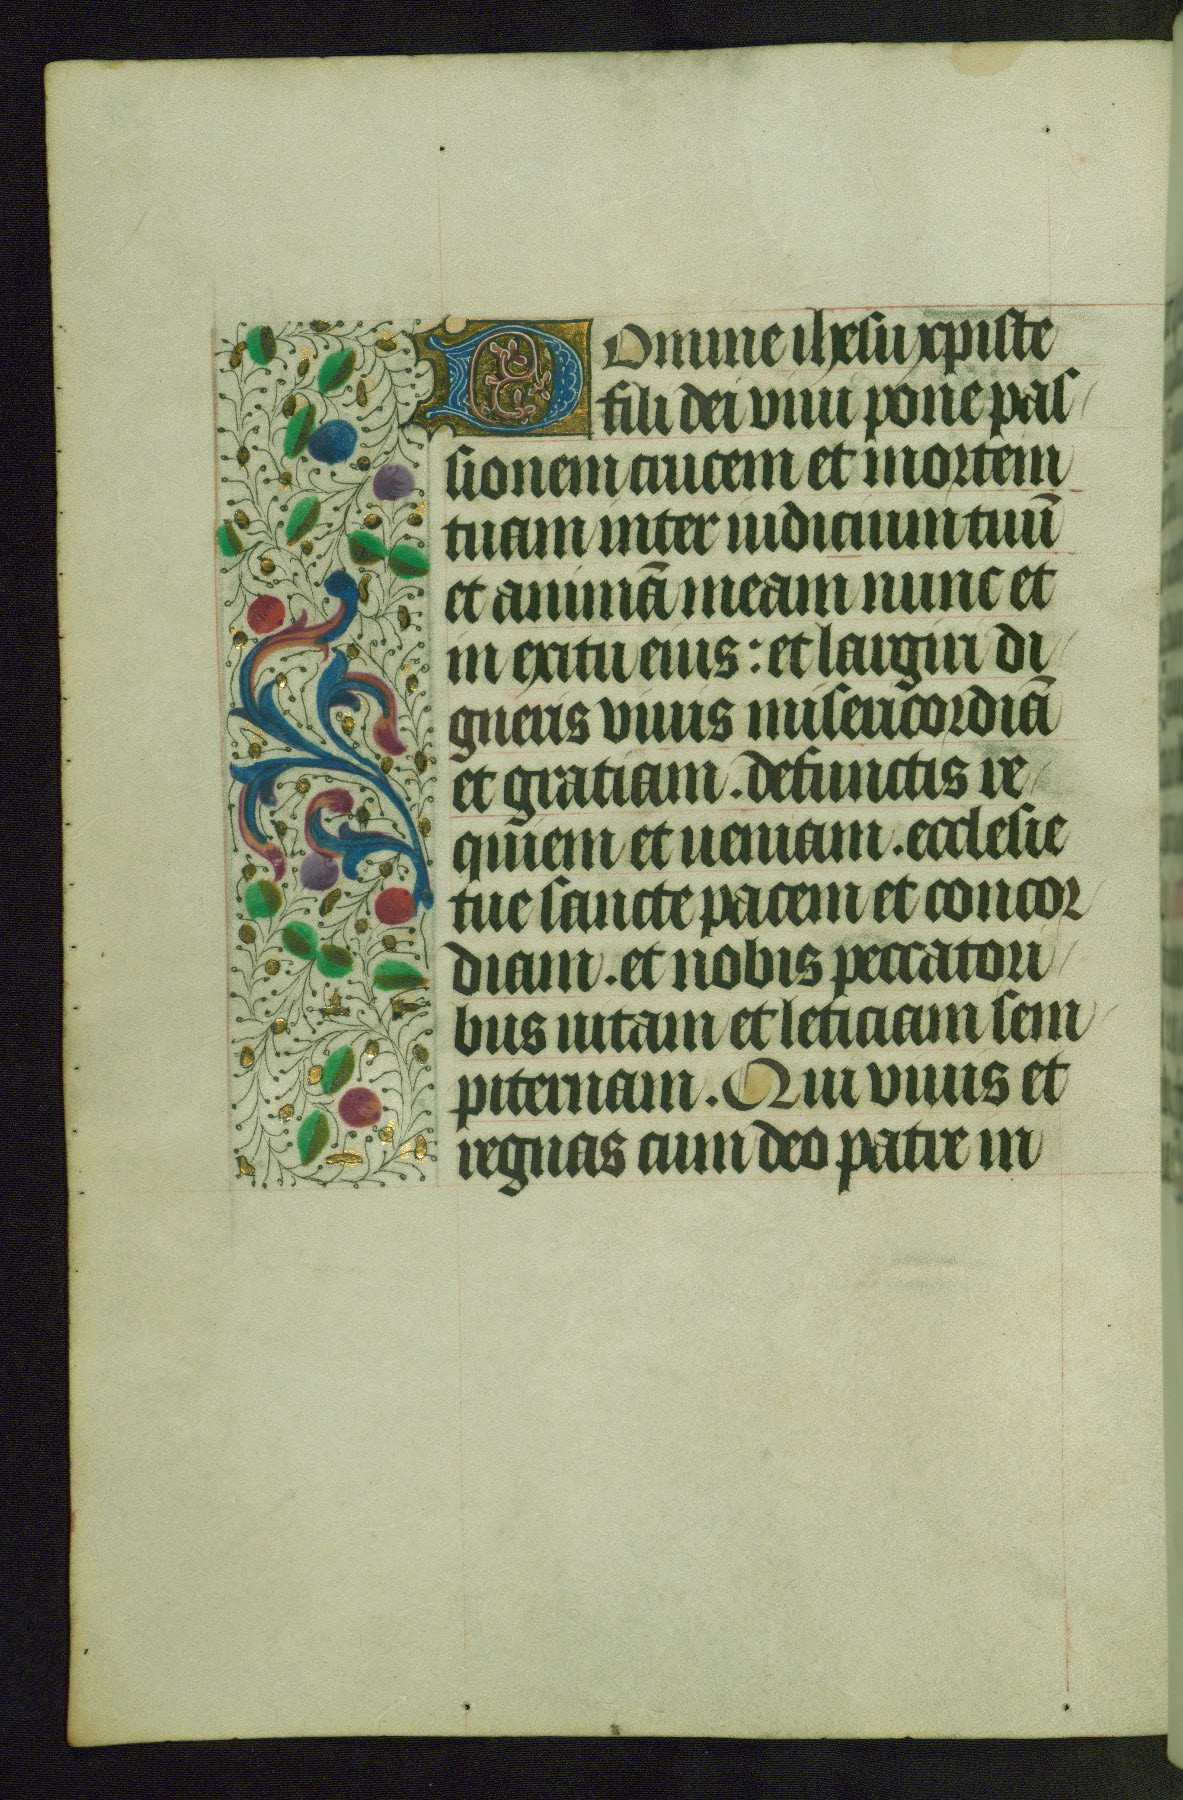 Domine ihesu xpiste
fili dei viui pone pas
sionem crucem et mortem
tuam inter iudicium tuū
et animā meam nunc et
in exitu eius : et largiri di
gneris viuis misericordiā
et gratiam . defunctis re
quiem et ueniam . ecclesie
tue sancte pacem et concor
diam . et nobis peccatori
bus uitam et leticiam sem
piternam . Qui viuis et
regnas cum deo patre in